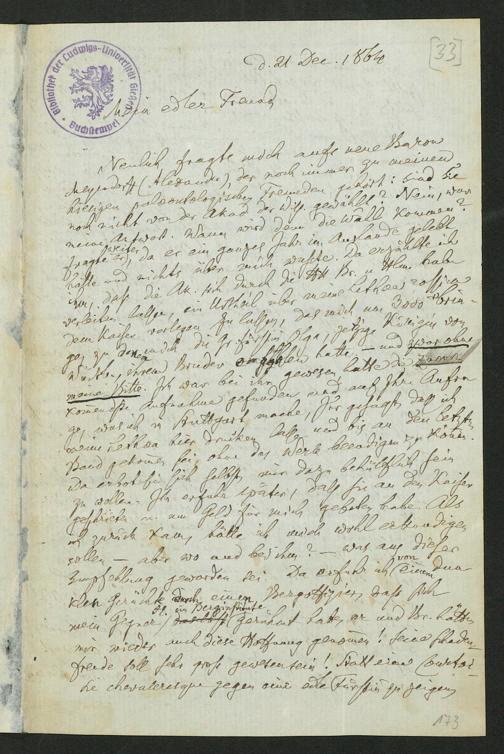 [33]
Bibliothek der Ludwigs-Universität Giessen
Buchstempel
d. 21 Dec. 1860
Mein edler Freund
Neulich fragte mich aufs neue Baron
Meyendorff (Alexander), der noch immer zu meinen
hiesigen paläontologischen Freunden gehört: Sind Sie
noch nicht von der Akad. der Wiss. gewählt? Nein, war
meine Antwort. Wann wird denn die Wahl kommen?
fragte er weiter, da er ein ganzes Jahr im Auslande gelebt
hatte und nichts über mich wusste. Da erzählte ich
ihm, dass die Ak. sich durch die HH Br. u. Hlm. habe
verleiten lassen, ein Urtheil über meine Lethaea rossica
dem Kaiser vorlegen zu lassen, das mich um 3000
zu denen die Grossfürstin Olga, jetzige Königin von
ihrem Bruder empfohlen hatte, – und zwar ohne
meine Bitte. Ich war bei ihr gewesen, hatte die
Aufnahme gefunden und auf ihre Anfra-
ge, was ich in Stuttgart mache, Ihr gesagt, dass ich
meine Lethaea hier drucken lasse und bis an den letzten
Band gekommen sei ohne das Werk beendigen zu können.
Da erbot sie sich selbst, mir dazu behülflich sein
zu wollen. Ich erfuhr später, dass sie an den Kaiser
geschrieben u. um Geld für mich gebeten habe. Als
ich zurück kam, hätte ich mich wohl erkundigen
sollen – aber wo und bei wem? – was aus dieser
Empfehlung geworden sei. Da erfuhr ich von einem
Gerücht durch einen Bergoffizier, dass sich
mein Gegner im Berginstitute gerühmt hatte, er und Br. hätten
mir wieder auch diese Hoffnung genommen! Seine Schaden-
freude soll sehr gross gewesen sein! Statt eine
chevaleresque gegen eine edle Fürstin zu zeigen
173